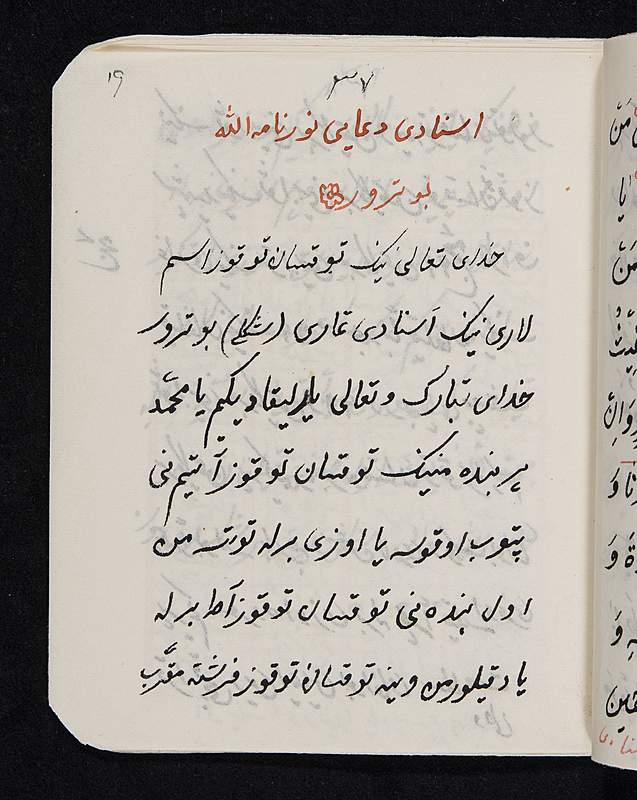 ۱۹
۳۷
اسنادی دعایی نورنامه الله
بو ترور
خدای تعالی نیک توقسان توقوز اسم
لاری نیک اَسنادی تماری (شکلی) بو ترور
خدای تبارک و تعالی یارلیقادیکیم یا محمّد
هر بنده منیک توقسان توقوز آتیم نی
پتوب اوقوسه یا اوزی برله توتسه من
اول بنده نی توقسان توقوز آط برله
یاد قیلورمن وینه توقسان توقوز فرشته مقّرب